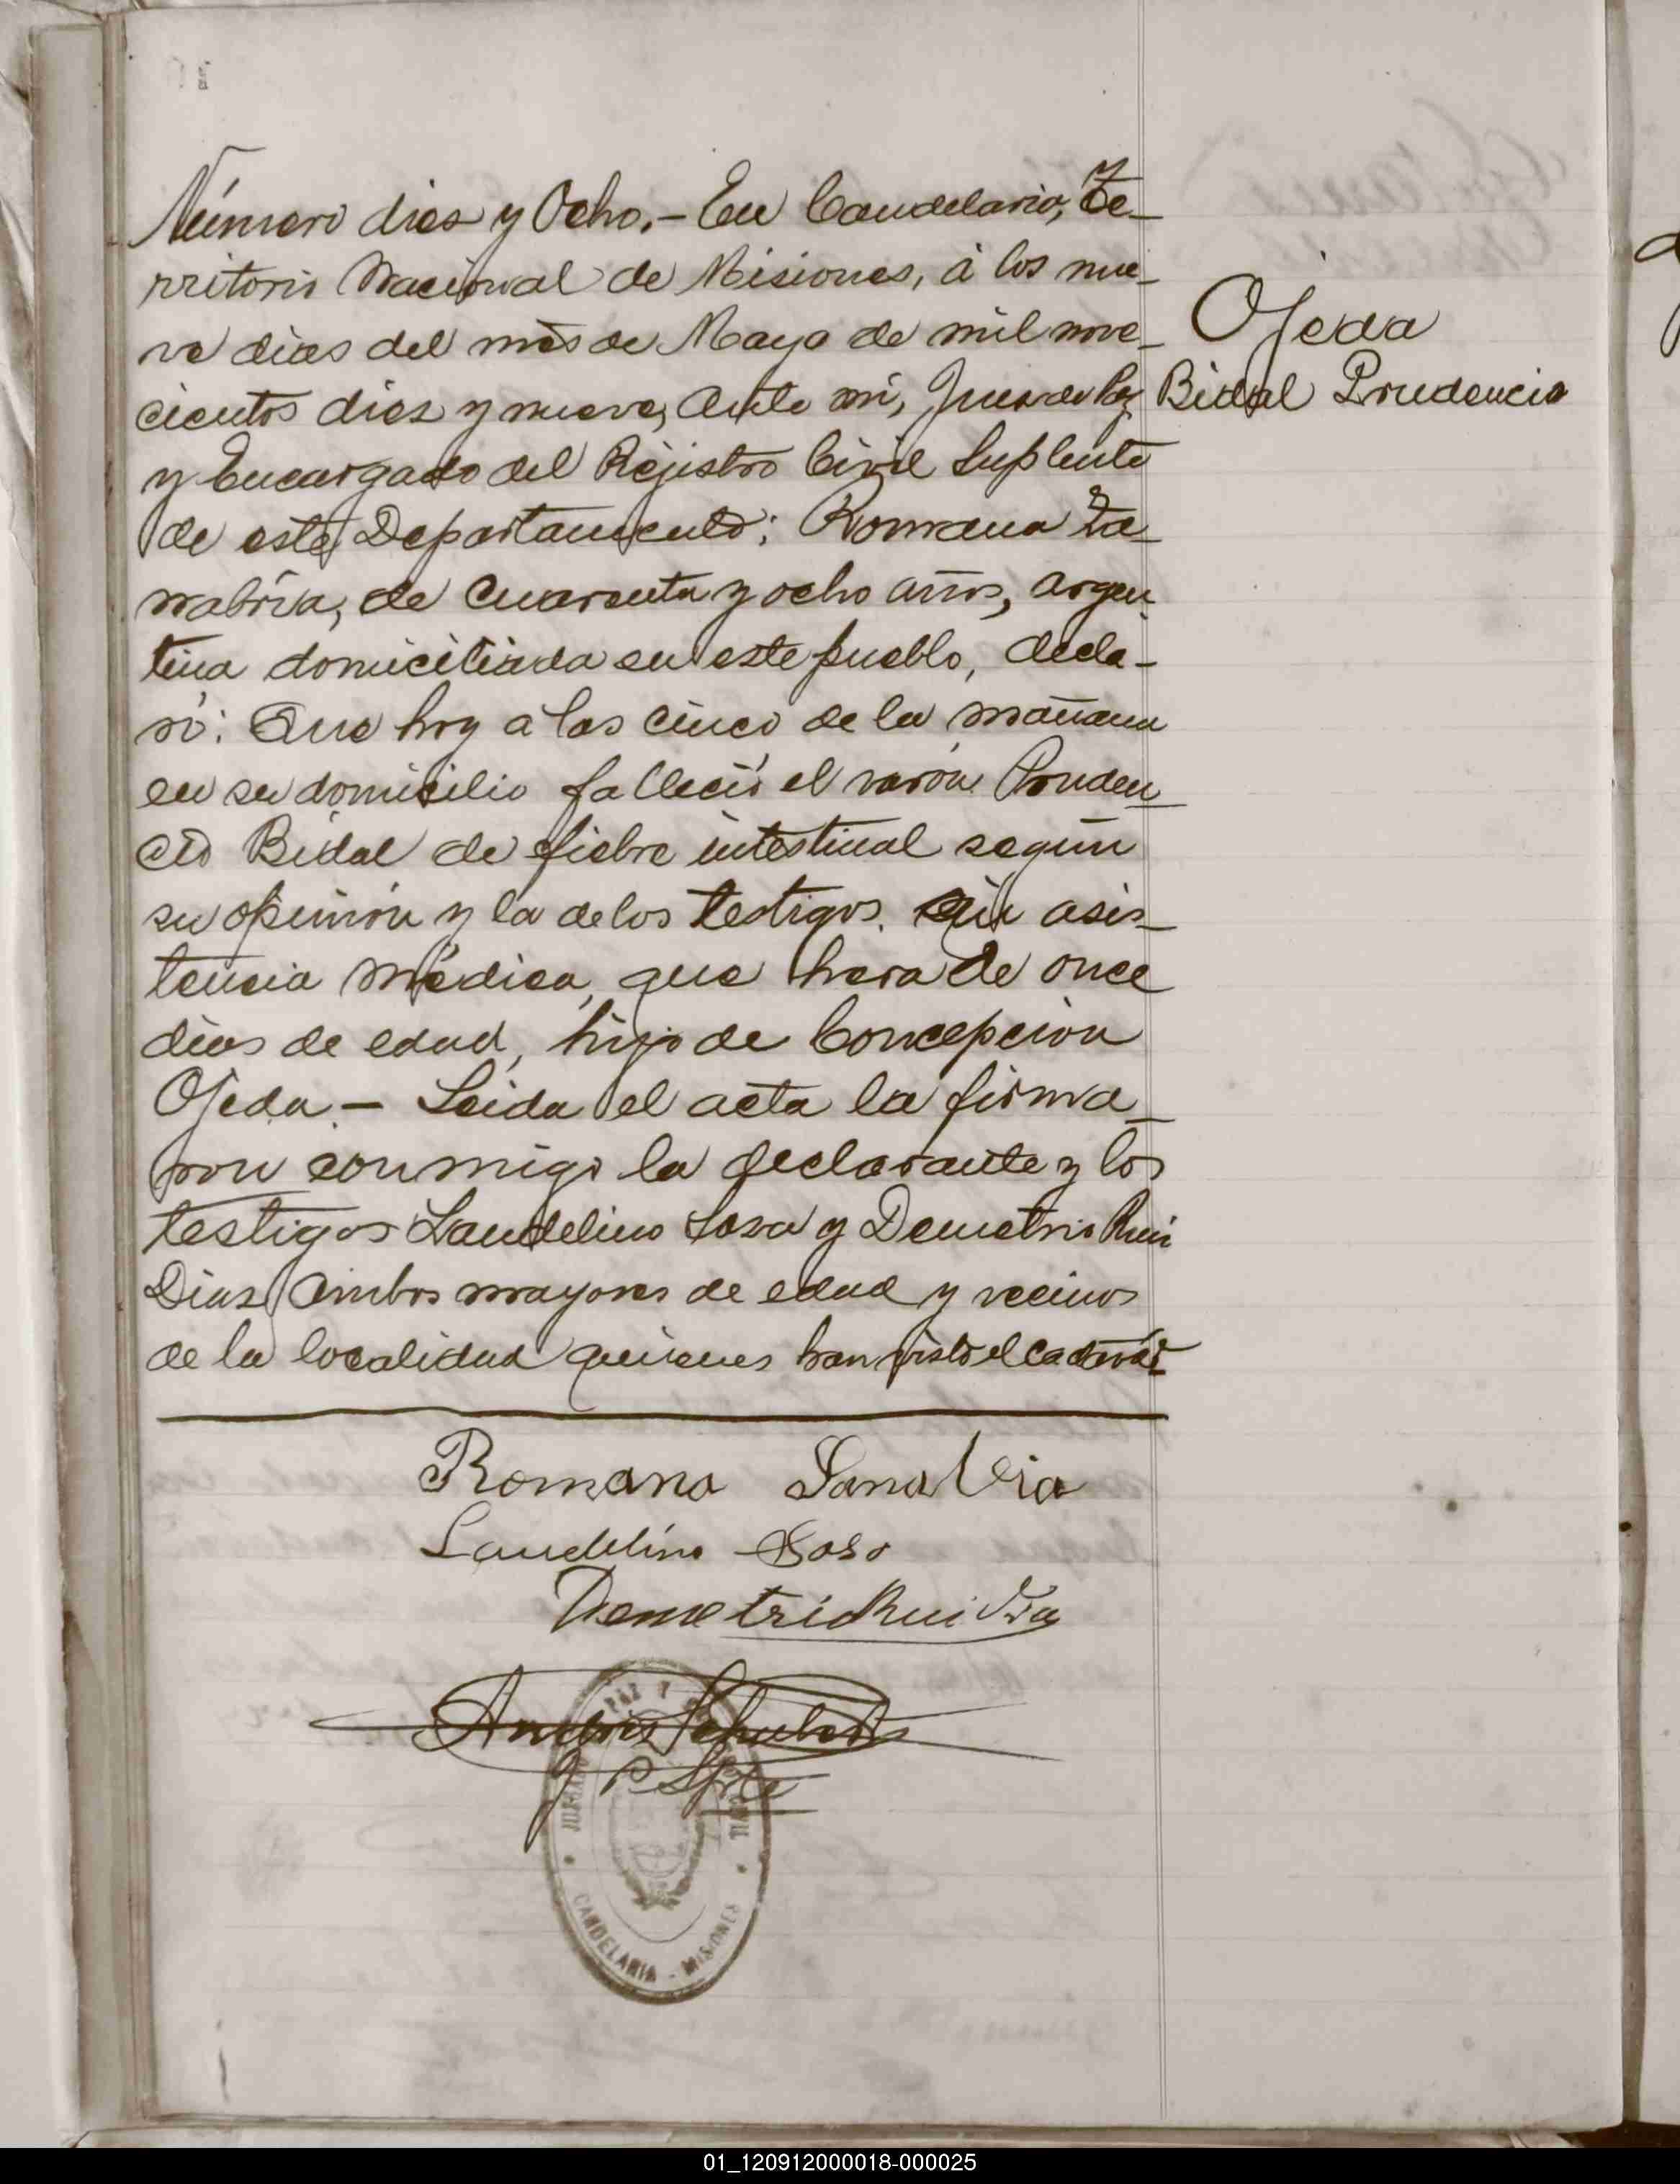 Número dies y Ocho.- En Candelaria, Te-
rritorio Nacional de Misiones, á los nue-
ve dias del mes de Mayo de mil nove-
cientos dies y nueve, Ante mi, Juez de Paz
y Encargado del Rejistro Civil Suplente
de este Departamento: Romana Za-
nabria, de cuarenta y ocho años, argen-
tina domiciliada en este pueblo, decla-
ró: Que hoy á las cinco de la mañana
en su domicilio falleció el varón Pruden-
cio Bidal de fiebre intestinal según
su opinión y la de los testigos. sin asis-
tencia médica, que hera de once
dias de edad, hijo de Concepcion
Ojeda.- Leida el acta la firma-
ron conmigo la declarante y los
testigos Laudelino Sosa y Demetrio Rui
Dias Ambos mayores de edad y vecinos
de la localidad quienes han visto el cadavér
Ojeda
Bidal Prudencio
Romana SanaVria
Laudelino Soso
Demetrio Rui Dia
Andrés Schubert
J P Splte
JUZGADO PAZ Y CIVIL
CANDELARIA - MISIONES
01_120912000018-000025